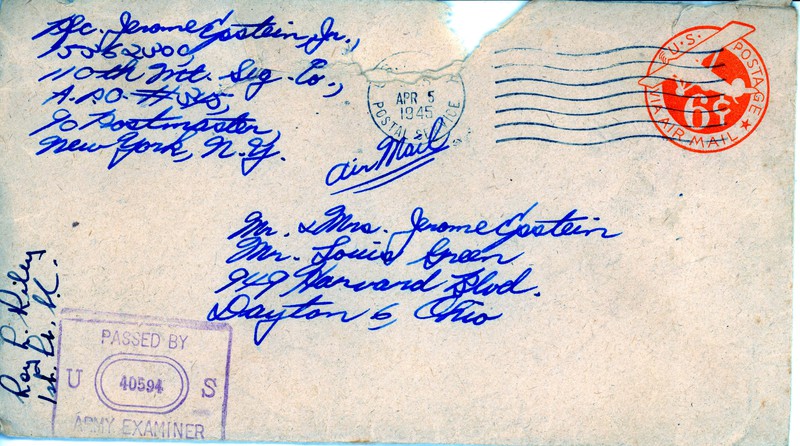 Pfc. Jerome Epstein, Jr.,
15562800,
110th Mt. Sig. Co.,
A.P.O. #345,
c/o Postmaster,
New York, N.Y.
APR 5
1945
POSTAL SERVICE
U.S. POSTAGE
6¢
VIA AIR MAIL
Air Mail
Mr. & Mrs. Jerome Epstein
Mr. Louis Green
949 Harvard Blvd.
Dayton 6, Ohio
Ray R. Riley
1st Lt.
PASSED BY
U 40594 S
ARMY EXAMINER